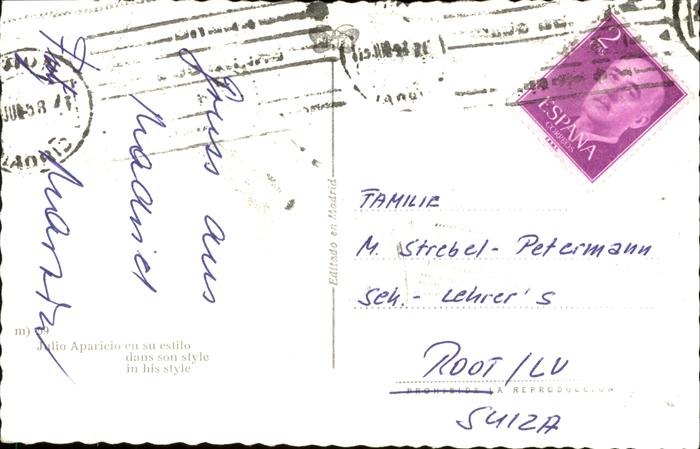 Gruss aus
Madrid
Martin
m) 69
Julio Aparicio en su estilo
dans son style
in his style
Editado en Madrid
2
PTAS
ESPAÑA
CORREOS
FAMILIE
M. Strebel-Petermann
Sek.- Lehrer's
ROOT/LU
PROHIBIDA LA REPRODUCCION
SUIZA